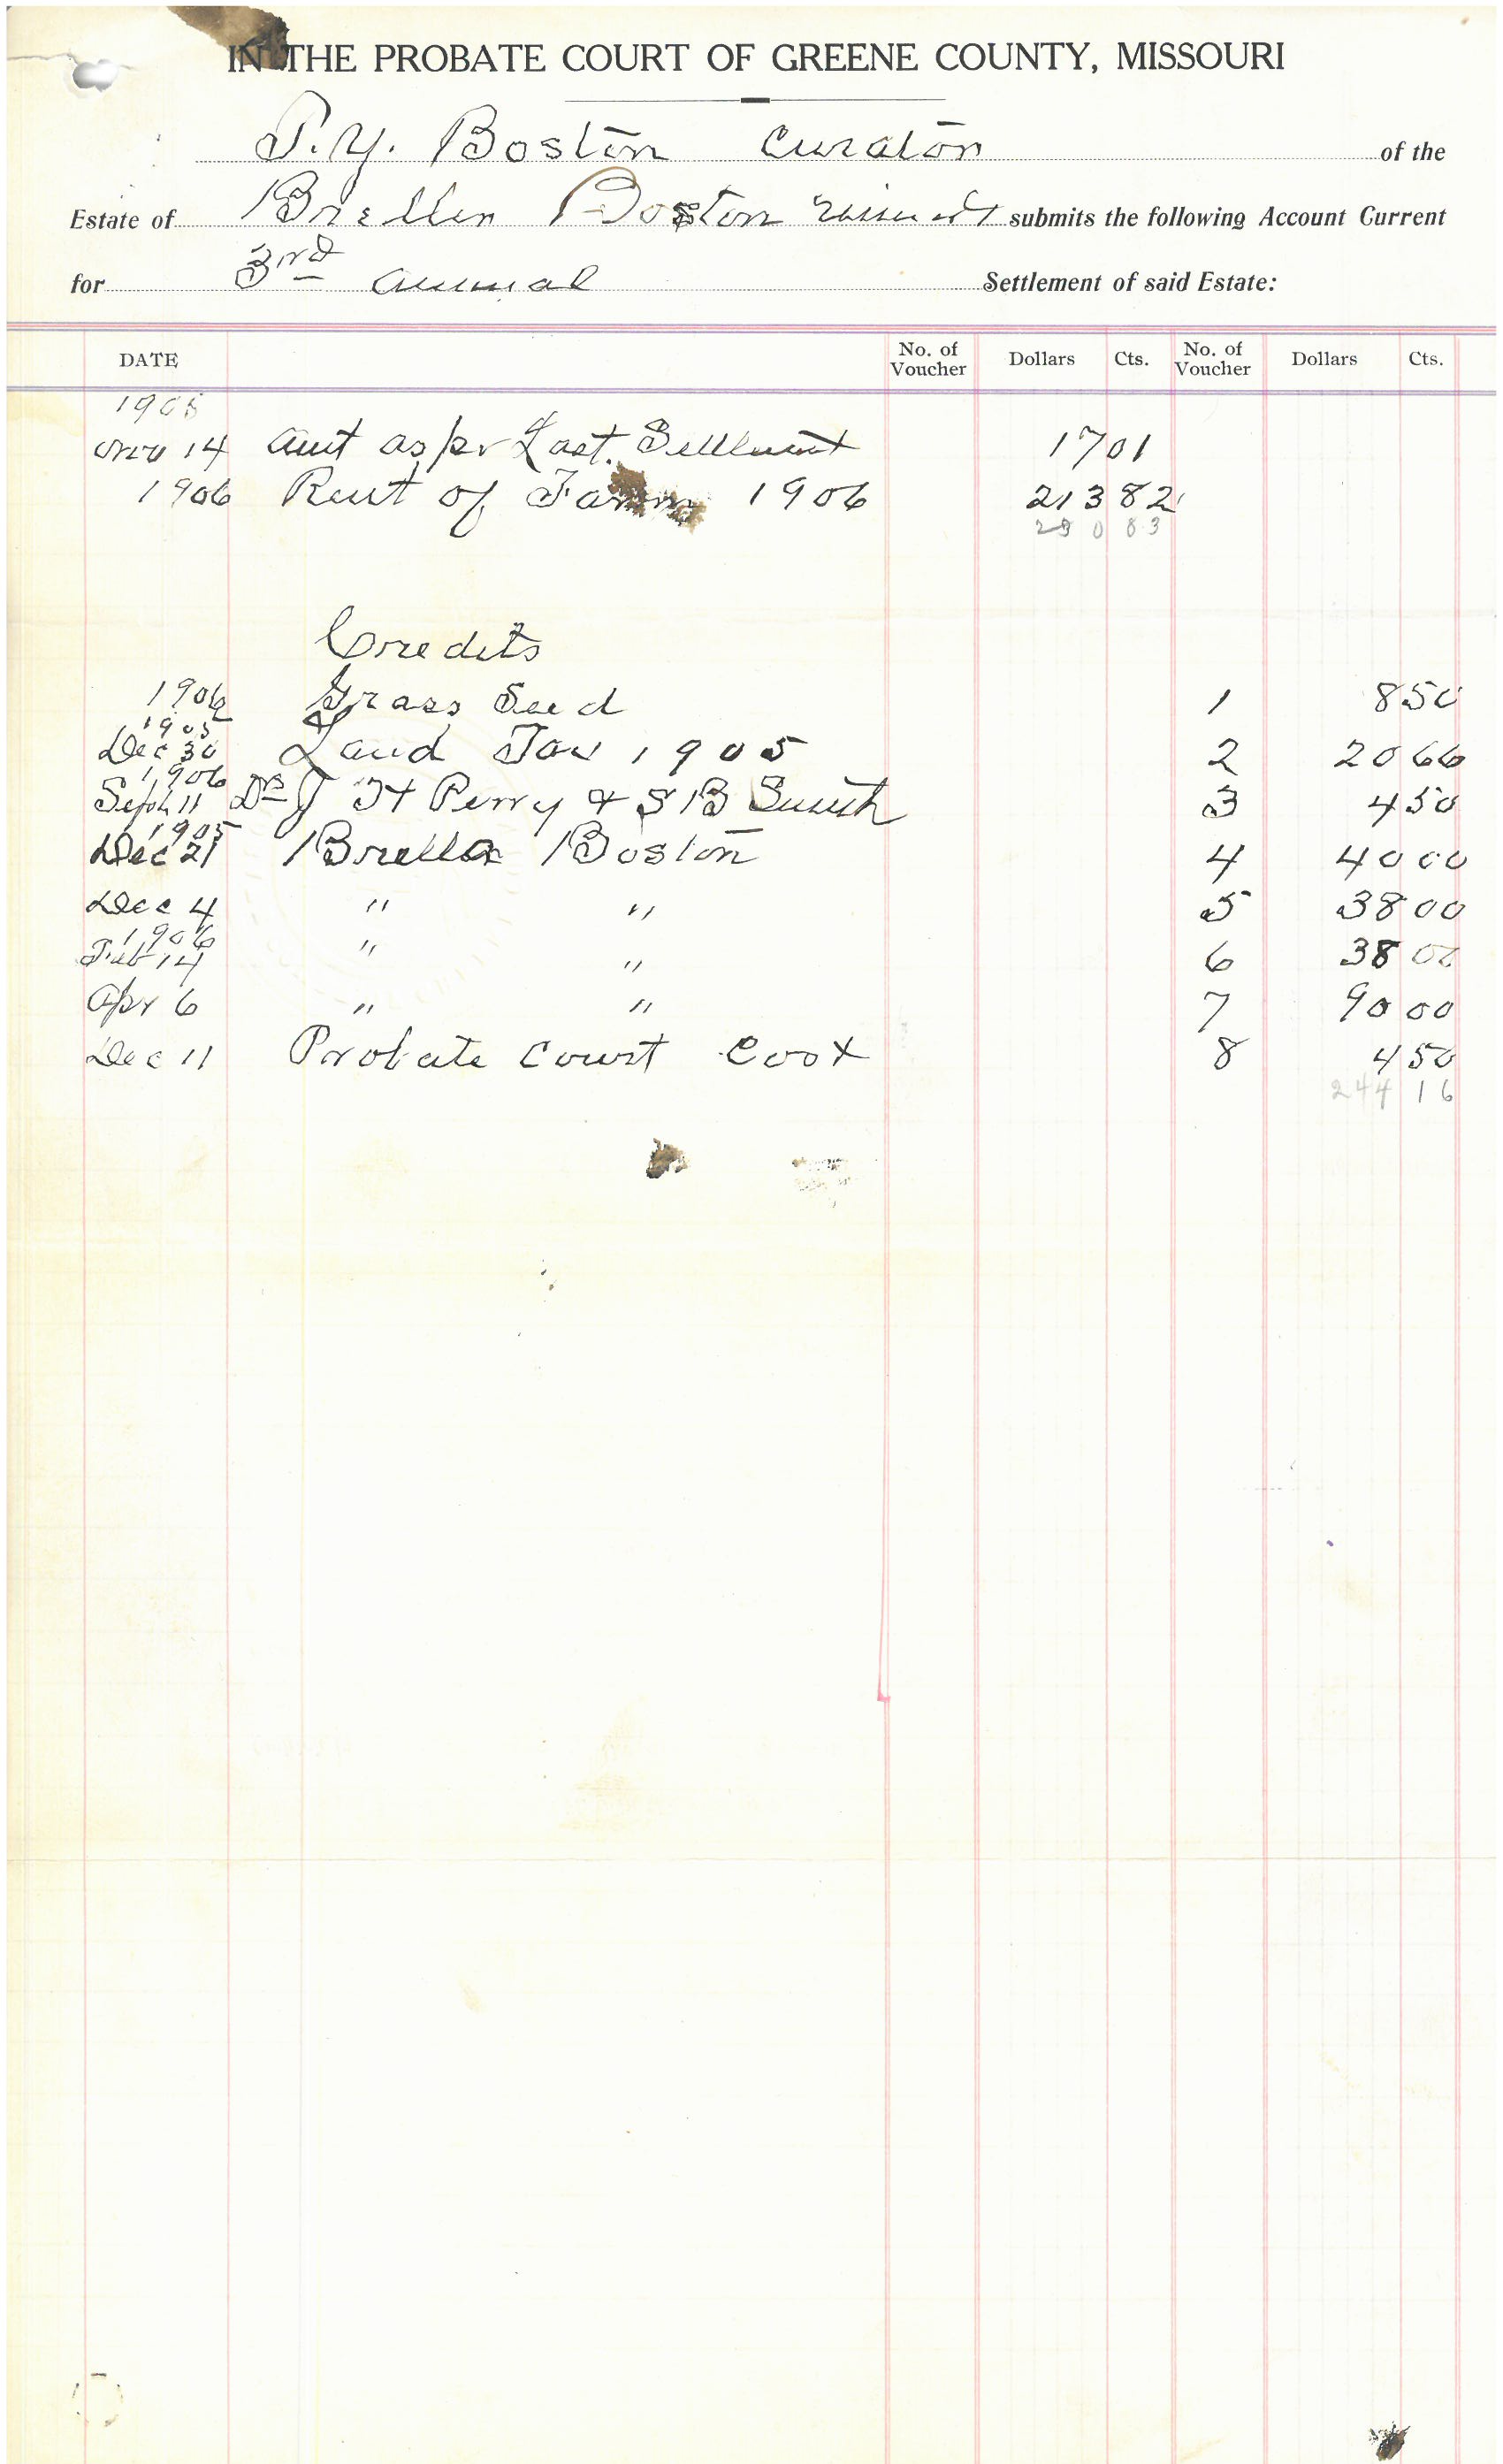 IN THE PROBATE COURT OF GREENE COUNTY, MISSOURI
P.Y. Boston Curator of the
Estate of Brella Boston minor submits the following Account Current
for 3rd annual Settlement of said Estate:
DATE No. of Voucher Dollars Cts. No. of Voucher Dollars Cts.
1905
Nov 14 amt as pr Last Settlment 17 01
1906 Rent of Farm 1906 213 82
230 83
Credits
1906 Grass Seed 1 8 50
1905
Dec 30 Land Tax 1905 2 20 66
1906
Sept 11 Drs J H Perry & S B Smith 3 4 50
1905
Dec 21 Brella Boston 4 40 00
Dec 4 " " 5 38 00
1906
Feb 14 " " 6 38 00
Apr 6 " " 7 90 00
Dec 11 Probate Court Cost 8 4 50
244 16